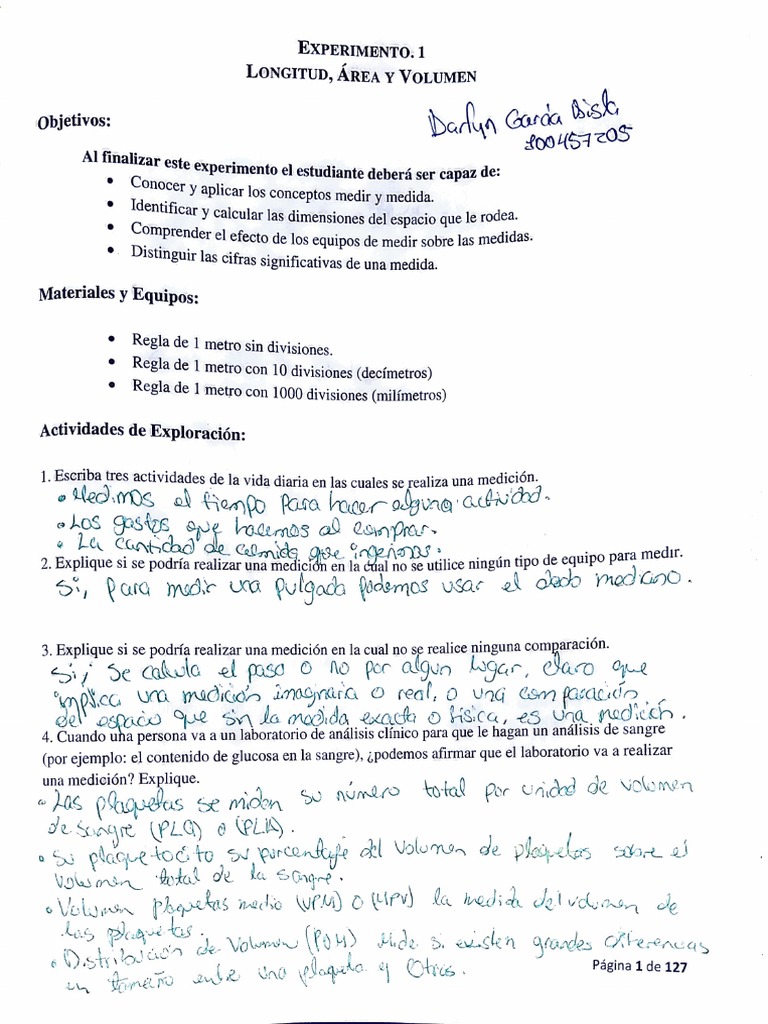 EXPERIMENTO. 1
LONGITUD, ÁREA Y VOLUMEN
Darlyn García
100457205
Objetivos:
Al finalizar este experimento el estudiante deberá ser capaz de:
• Conocer y aplicar los conceptos medir y medida.
• Identificar y calcular las dimensiones del espacio que le rodea.
• Comprender el efecto de los equipos de medir sobre las medidas.
• Distinguir las cifras significativas de una medida.
Materiales y Equipos:
• Regla de 1 metro sin divisiones.
• Regla de 1 metro con 10 divisiones (decímetros)
• Regla de 1 metro con 1000 divisiones (milímetros)
Actividades de Exploración:
1. Escriba tres actividades de la vida diaria en las cuales se realiza una medición.
• Medimos el tiempo para hacer alguna actividad.
• Los gastos que hacemos al comprar.
• La cantidad de comida que
2. Explique si se podría realizar una medición en la cual no se utilice ningún tipo de equipo para medir.
Si, para medir una pulgada podemos usar el dedo mediano.
3. Explique si se podría realizar una medición en la cual no se realice ninguna comparación.
Si; se calcula el paso o no por algun lugar, claro que
implica una medición imaginaria o real, o una comparación
del espacio que sin la medida exacta o física, es una medición.
4. Cuando una persona va a un laboratorio de análisis clínico para que le hagan un análisis de sangre
(por ejemplo: el contenido de glucosa en la sangre), ¿podemos afirmar que el laboratorio va a realizar
una medición? Explique.
• Las plaquetas se miden su número total por unidad de volumen
de sangre (PLQ) o (PLA).
• Su plaquetocito su porcentaje del volumen de plaquetas sobre el
volumen total de la sangre.
• Volumen plaquetas medio (VPM) o (MPV) la medida del volumen de
las plaquetas.
• Distribución de Volumen (PDM) Mide si existen grandes diferencias
en tamaño entre una plaqueta y Otras.
Página 1 de 127